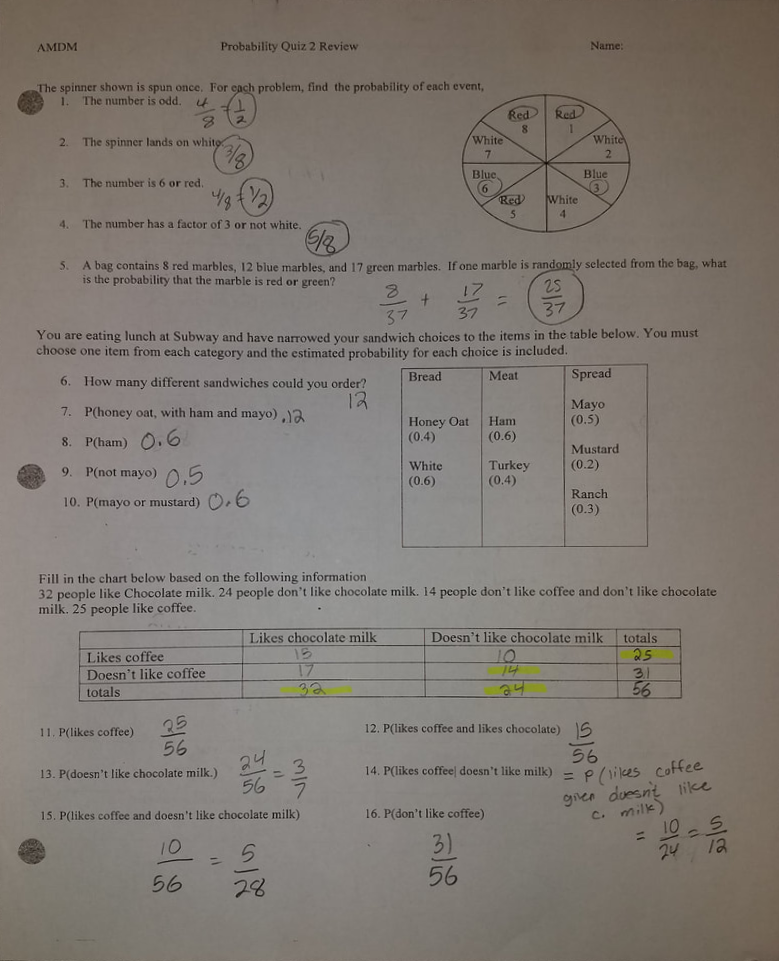 AMDM Probability Quiz 2 Review Name:
The spinner shown is spun once. For each problem, find the probability of each event,
1. The number is odd. 4/8 = 1/2
2. The spinner lands on white. 3/8
3. The number is 6 or red. 4/8 = 1/2
4. The number has a factor of 3 or not white. 5/8
Red 8
Red 1
White 7
White 2
Blue 6
Blue 3
Red 5
White 4
5. A bag contains 8 red marbles, 12 blue marbles, and 17 green marbles. If one marble is randomly selected from the bag, what
is the probability that the marble is red or green?
8/37 + 17/37 = 25/37
You are eating lunch at Subway and have narrowed your sandwich choices to the items in the table below. You must
choose one item from each category and the estimated probability for each choice is included.
6. How many different sandwiches could you order?
12
7. P(honey oat, with ham and mayo) .12
8. P(ham) 0.6
9. P(not mayo) 0.5
10. P(mayo or mustard) 0.6
Bread Meat Spread
Mayo
(0.5)
Honey Oat Ham
(0.4) (0.6)
Mustard
(0.2)
White Turkey
(0.6) (0.4)
Ranch
(0.3)
Fill in the chart below based on the following information
32 people like Chocolate milk. 24 people don't like chocolate milk. 14 people don't like coffee and don't like chocolate
milk. 25 people like coffee.
Likes chocolate milk Doesn't like chocolate milk totals
Likes coffee 15 10 25
Doesn't like coffee 17 14 31
totals 32 24 56
11. P(likes coffee) 25/56
12. P(likes coffee and likes chocolate) 15/56
13. P(doesn't like chocolate milk.) 24/56 = 3/7
14. P(likes coffee| doesn't like milk) = P(likes coffee
given doesn't like
c. milk)
= 10/24 = 5/12
15. P(likes coffee and doesn't like chocolate milk)
10/56 = 5/28
16. P(don't like coffee)
31/56